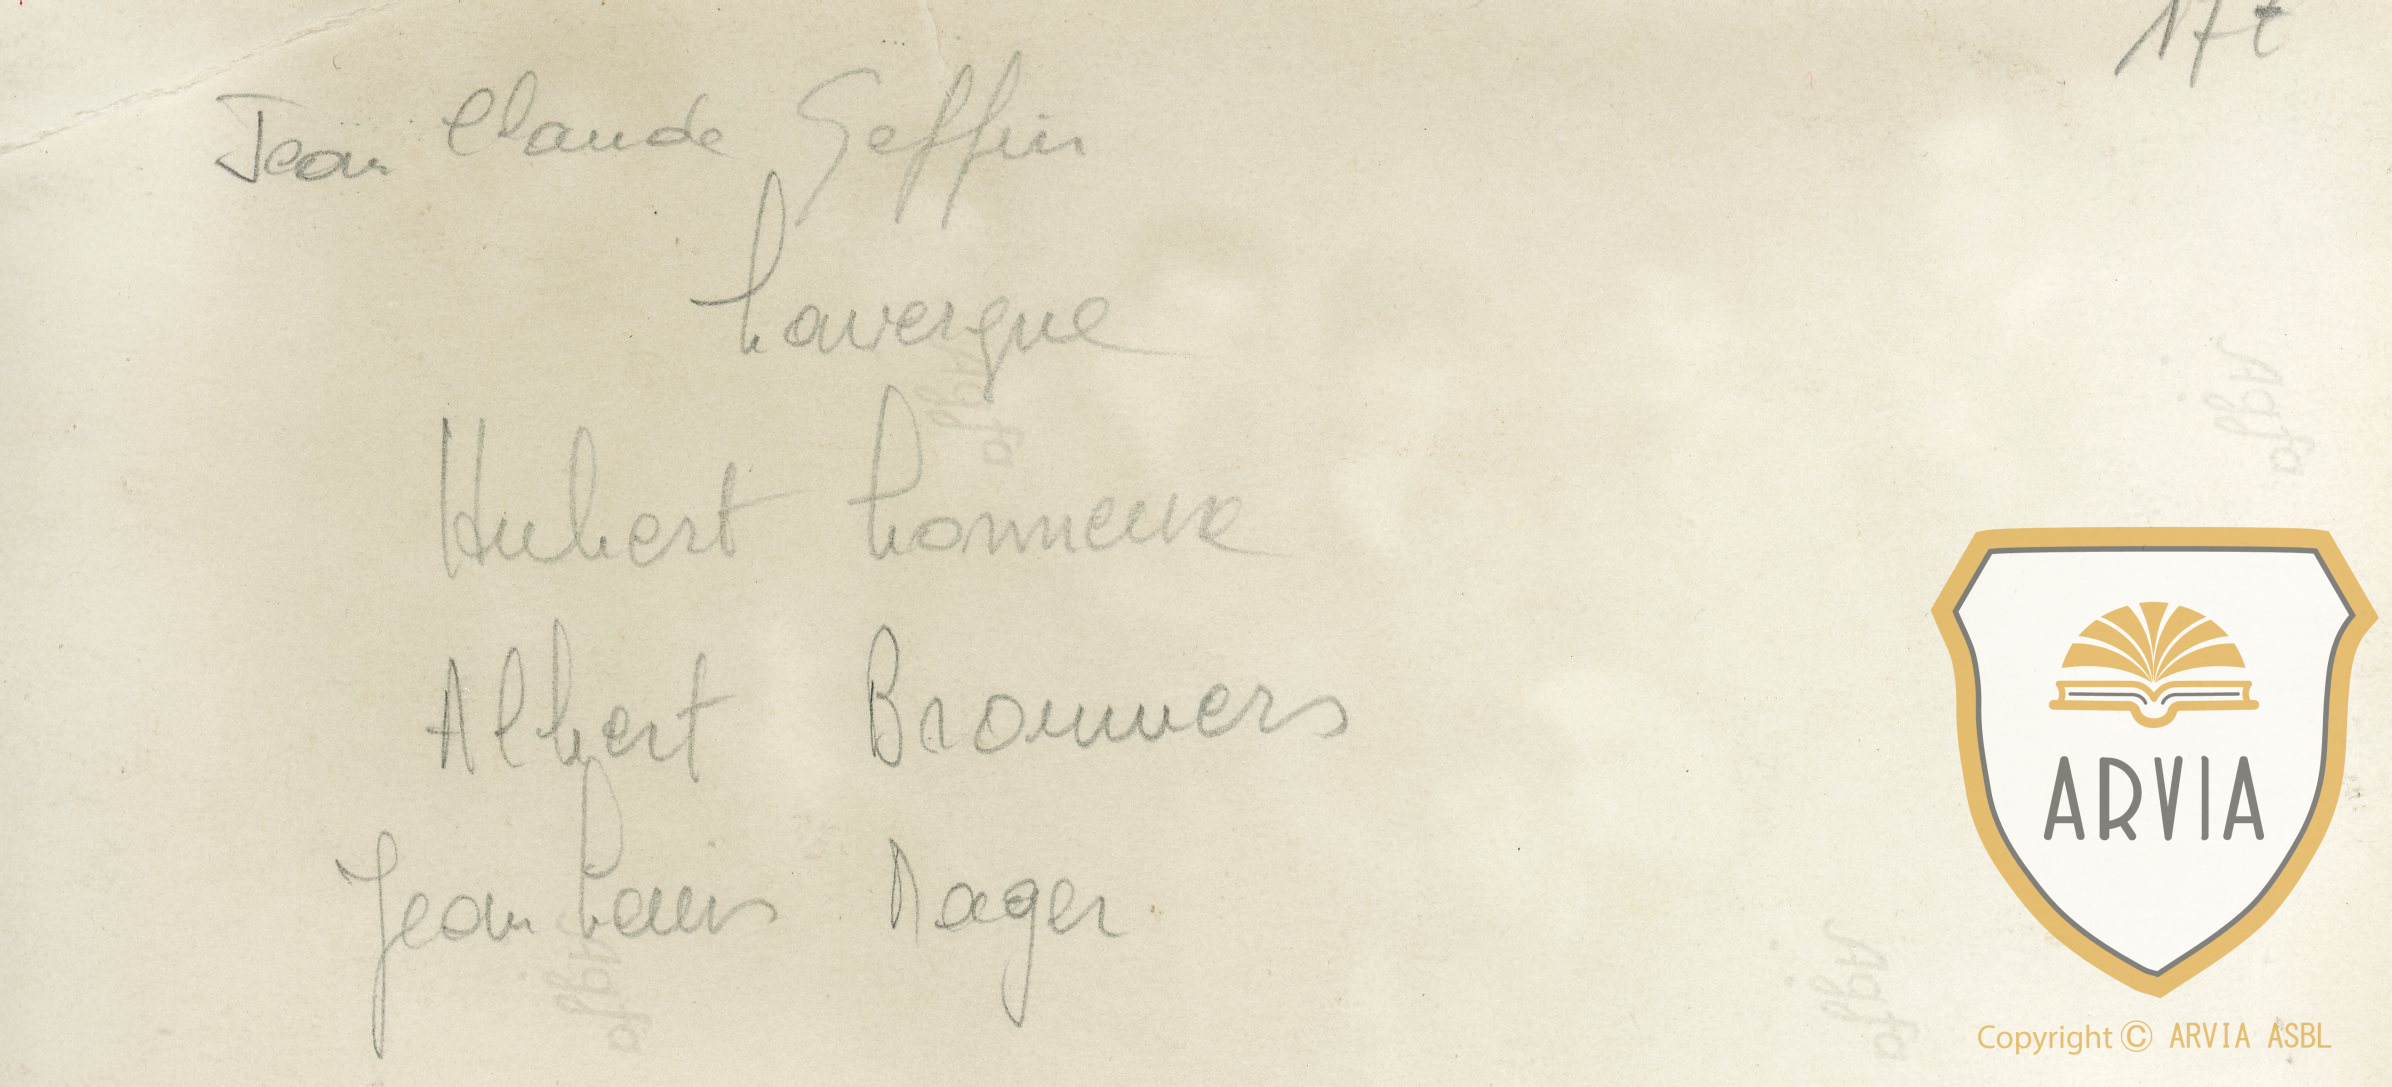 17t
Jean Claude Geffin
Lavergne
Hubert Lonneux
Albert Brouwers
Jean Louis Nager
Agfa
Agfa
Agfa
Agfa
ARVIA
Copyright © ARVIA ASBL